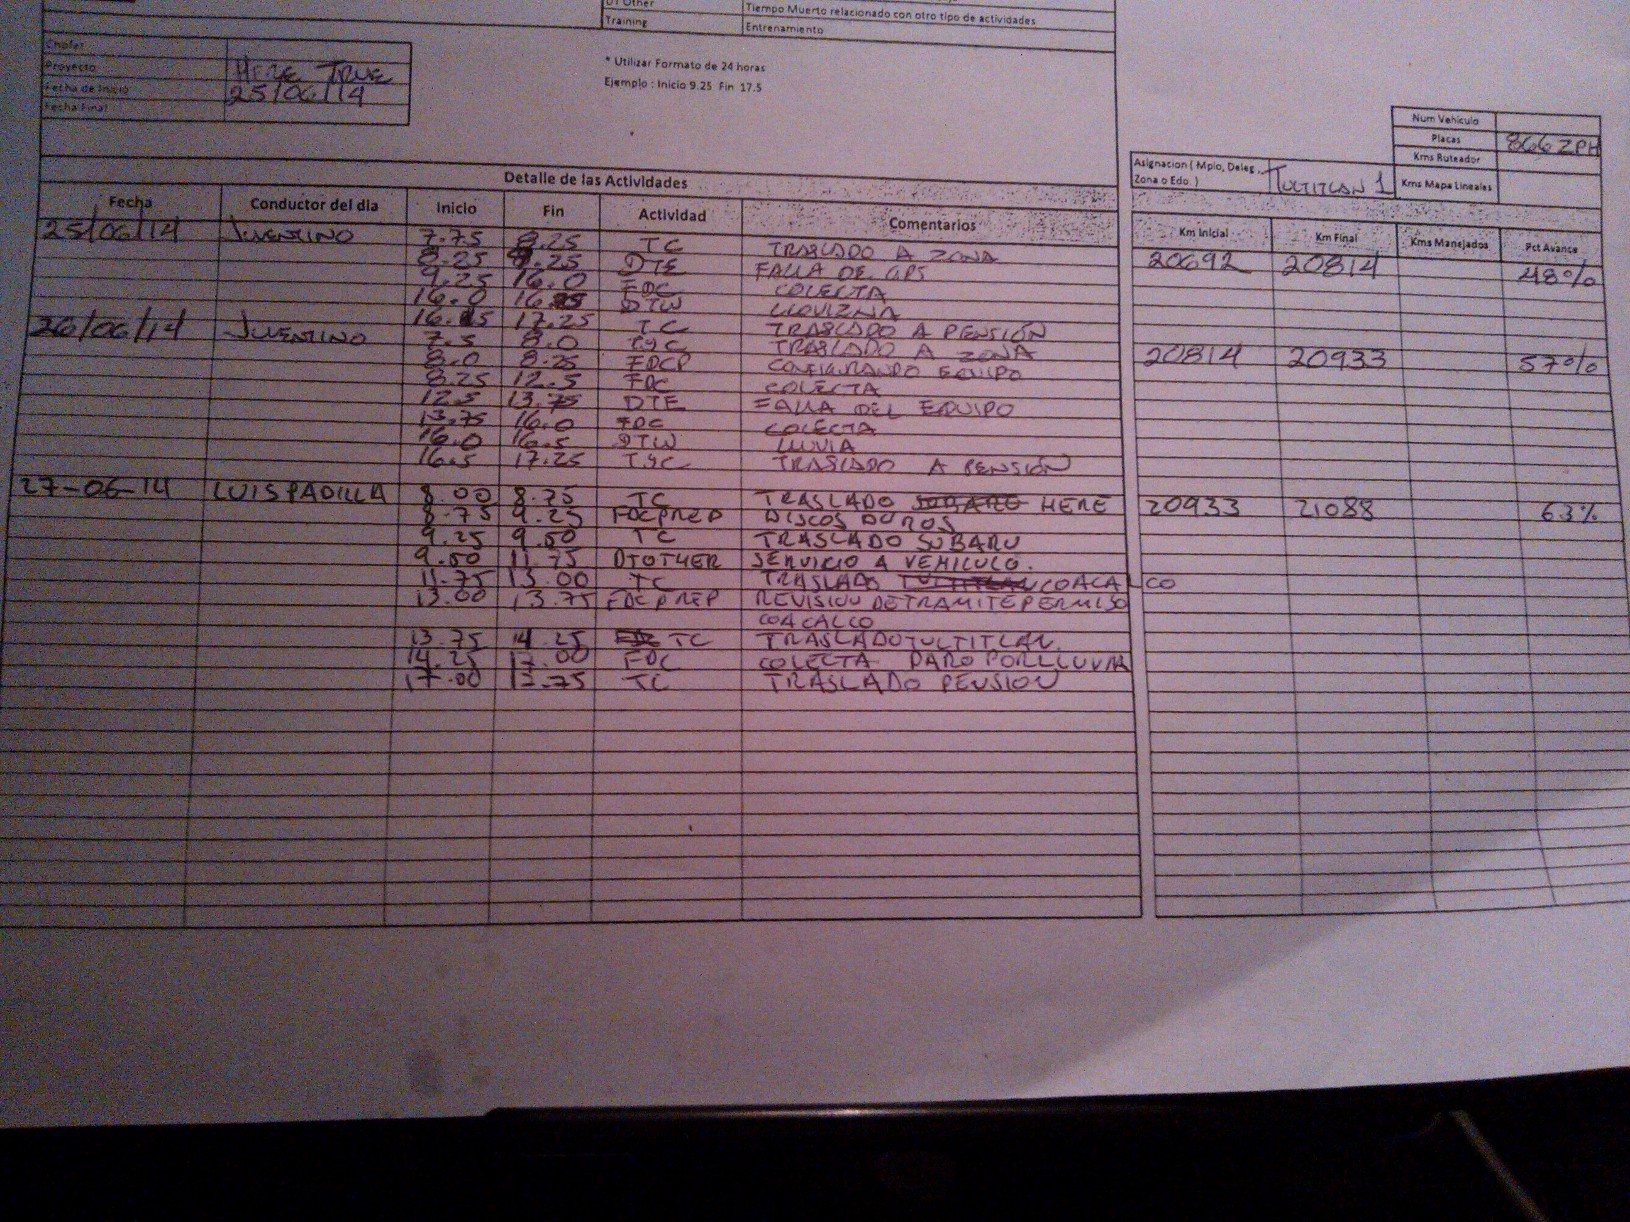 DT Other Tiempo Muerto relacionado con otro tipo de actividades
Training Entrenamiento
Chofer
Proyecto HERE TRUE
Fecha de Inicio 25/06/14
Fecha Final
* Utilizar Formato de 24 horas
Ejemplo : Inicio 9.25 Fin 17.5
Num Vehiculo
Placas 866ZPH
Kms Ruteador
Kms Mapa Lineales
Asignacion ( Mpio, Deleg., Zona o Edo. ) TULTITLAN 1
Detalle de las Actividades
Fecha Conductor del dia Inicio Fin Actividad Comentarios Km Inicial Km Final Kms Manejados Pct Avance
25/06/14 JUVENTINO 7.75 8.25 TC TRASLADO A ZONA 20692 20814 48%
8.25 9.25 DTE FALLA DE GPS
9.25 16.0 FDC COLECTA
16.0 DTW LLOVIZNA
17.25 TC TRASLADO A PENSIÓN
26/06/14 JUVENTINO 7.5 8.0 TYC TRASLADO A ZONA 20814 20933 57%
8.0 8.25 FDCP CONFIGURANDO EQUIPO
8.25 12.5 FDC COLECTA
12.5 13.75 DTE FALLA DEL EQUIPO
13.75 16.0 FDC COLECTA
16.0 16.5 DTW LLUVIA
16.5 17.25 TYC TRASLADO A PENSIÓN
27-06-14 LUIS PADILLA 8.00 8.75 TC TRASLADO HERE 20933 21088 63%
8.75 9.25 FDCPREP DISCOS DUROS
9.25 9.50 TC TRASLADO SUBARU
9.50 11.75 DTOTHER SERVICIO A VEHICULO.
11.75 13.00 TC TRASLADO COACALCO
13.00 13.75 FDCPREP REVISION DE TRAMITE PERMISO
COACALCO
13.75 14.25 TC TRASLADO TULTITLAN
14.25 17.00 FDC COLECTA PARO POR LLUVIA
17.00 17.75 TC TRASLADO PENSION